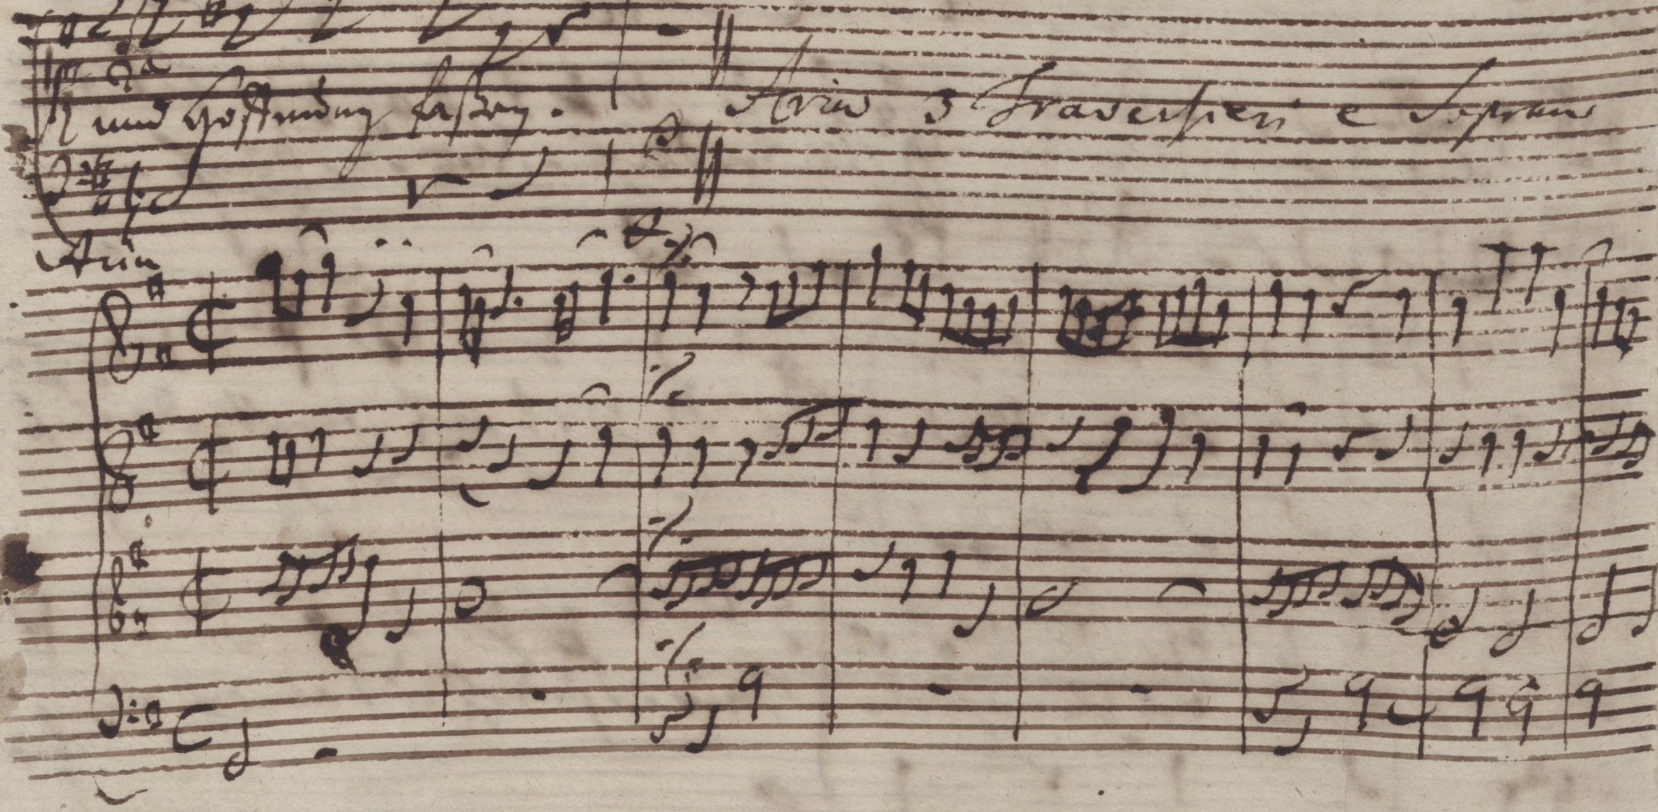 und Hoffnung lassen. Aria 3 Traversieri e Soprano
Aria